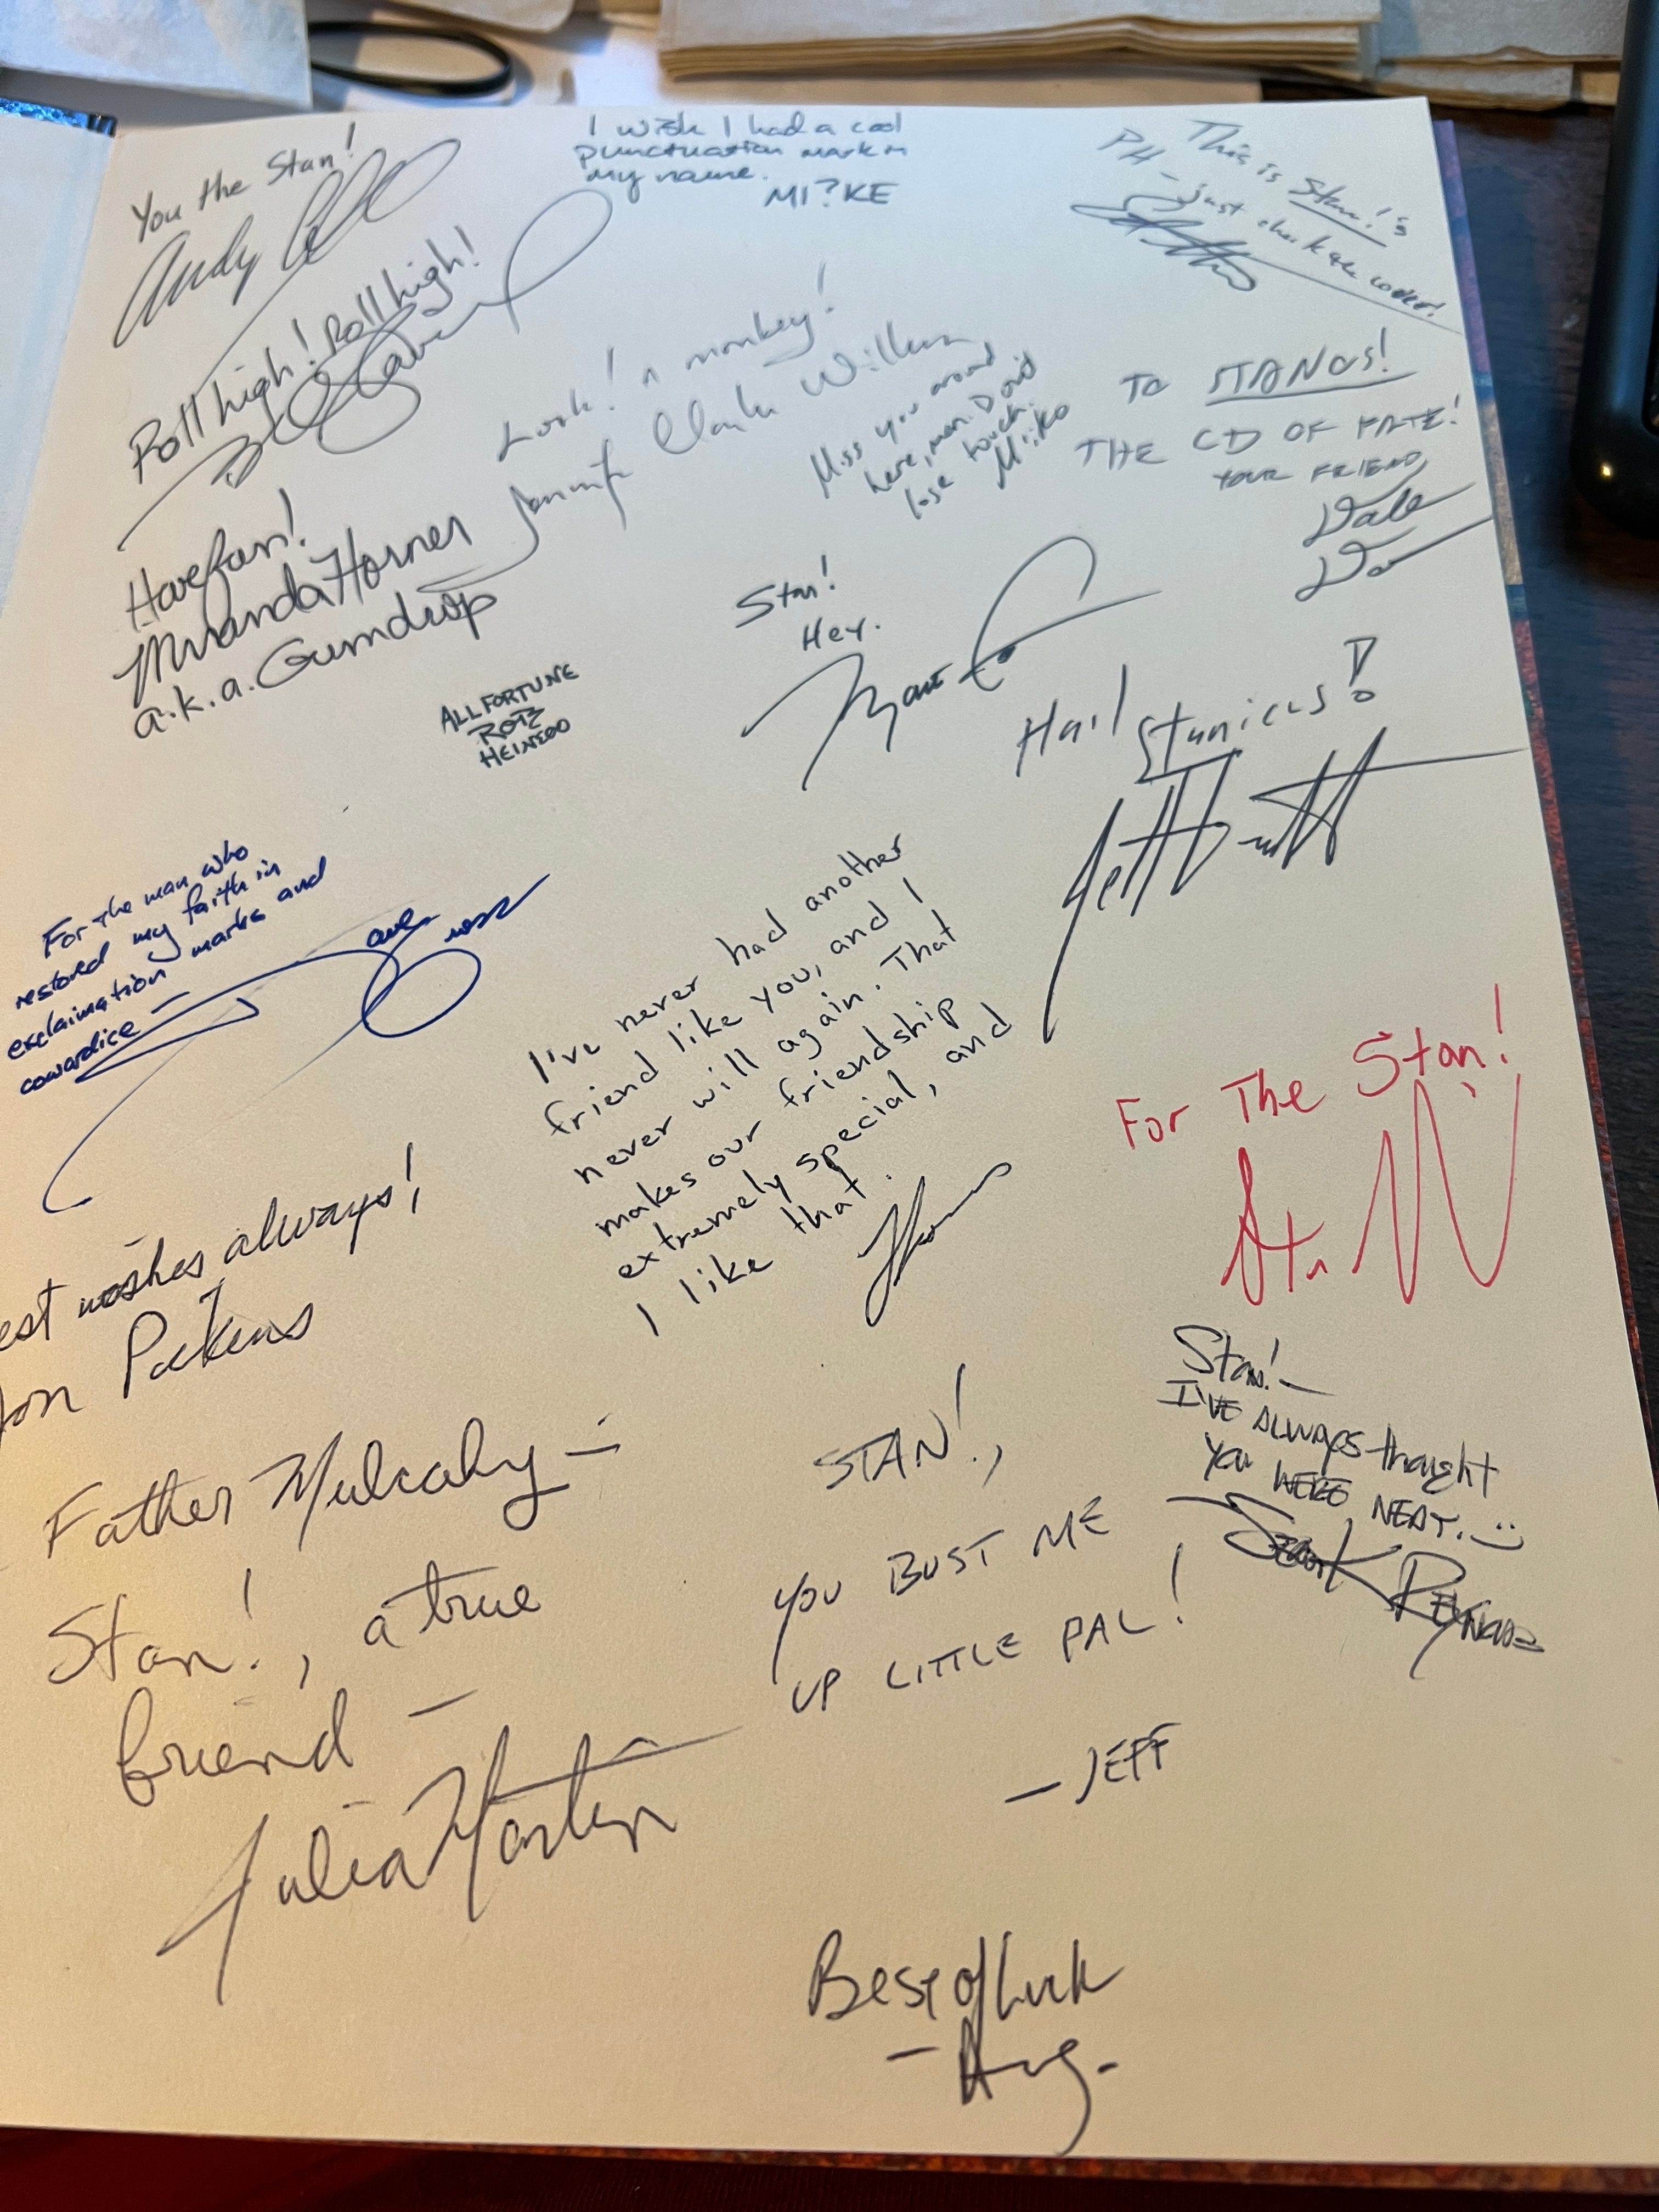 You the Stan!
Andy
I wish I had a cool
punctuation mark in
my name.
MI?KE
This is Stan!'s
PH - just check the cover!
Roll high! Roll high!
Look! A monkey!
Jennifer Clarke Wilkes
Miss you around
here, man. Don't
lose touch.
To STANGS!
THE CD OF FATE!
YOUR FRIEND,
Dale
Have fun!
Miranda Horner
a.k.a. Gumdrop
Stan!
Hey.
ALL FORTUNE
ROB
HEINSOO
Hail Stanicus!
For the man who
restored my faith in
exclamation marks and
cowardice —
I've never had another
friend like you, and I
never will again. That
makes our friendship
extremely special, and
I like that.
For The Stan!
est wishes always!
on Pickens
Stan! —
I'VE ALWAYS thought
You WERE NEAT. :)
Father Mulcahy —
Stan!, a true
friend —
Julia Martin
STAN!,
YOU BUST ME
UP LITTLE PAL!
— JEFF
Best of Luck